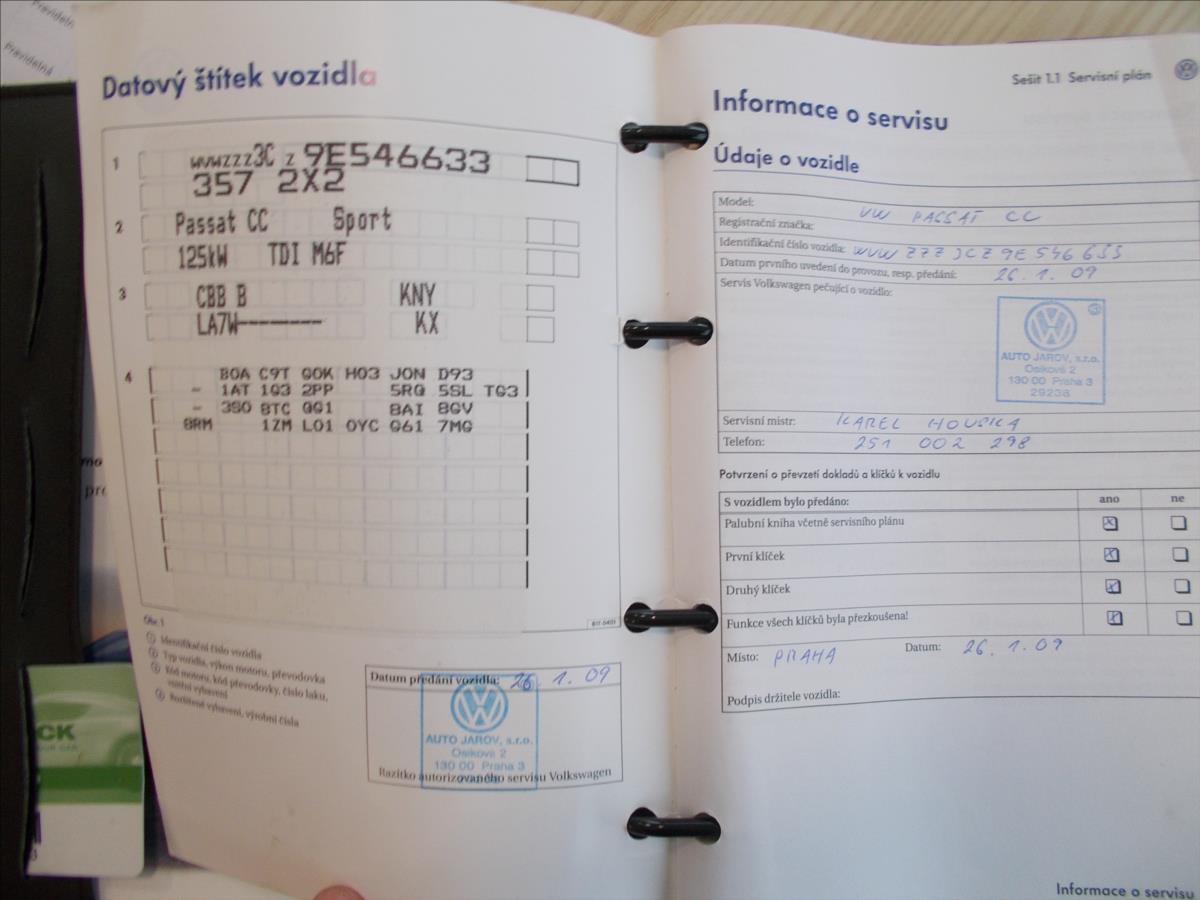 Pravidelná
Datový štítek vozidla
1
WVWZZZ3C Z 9E546633
357 2X2
2
Passat CC Sport
125kW TDI M6F
3
CBB B KNY
LA7W-------- KX
4
B0A C9T G0K H03 J0N D93
- 1AT 1G3 2PP 5RQ 5SL TG3
- 3S0 8TC QG1 8AI 8GV
8RM 1ZM L01 0YC Q61 7MG
Obr. 1
1 Identifikační číslo vozidla
2 Typ vozidla, výkon motoru, převodovka
3 Kód motoru, kód převodovky, číslo laku,
vnitřní vybavení
4 Rozšířené vybavení, výrobní čísla
Datum předání vozidla: 26. 1. 09
AUTO JAROV, s.r.o.
Osiková 2
130 00 Praha 3
Razítko autorizovaného servisu Volkswagen
Sešit 1.1 Servisní plán
Informace o servisu
Údaje o vozidle
Model: VW PASSAT CC
Registrační značka:
Identifikační číslo vozidla: WVW ZZZ 3CZ 9E 546 633
Datum prvního uvedení do provozu, resp. předání: 26. 1. 09
Servis Volkswagen pečující o vozidlo:
AUTO JAROV, s.r.o.
Osiková 2
130 00 Praha 3
29236
Servisní mistr: KAREL HOUSKA
Telefon: 251 002 298
Potvrzení o převzetí dokladů a klíčků k vozidlu
S vozidlem bylo předáno: ano ne
Palubní kniha včetně servisního plánu
První klíček
Druhý klíček
Funkce všech klíčků byla přezkoušena!
Místo: PRAHA Datum: 26. 1. 09
Podpis držitele vozidla:
Informace o servisu